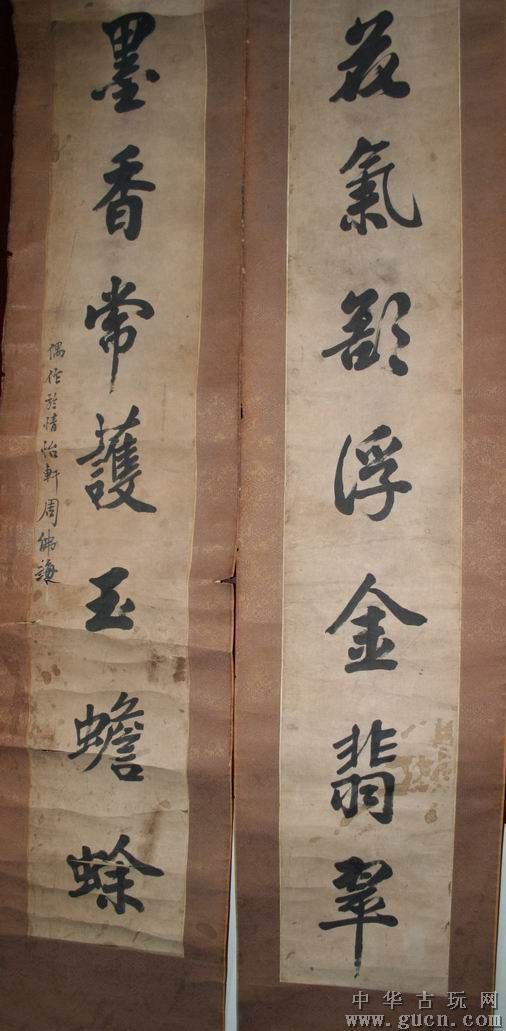 花氣欲浮金翡翠
墨香常護玉蟾蜍
偶作於情怡軒周佛
中华古玩网
www.gucn.com